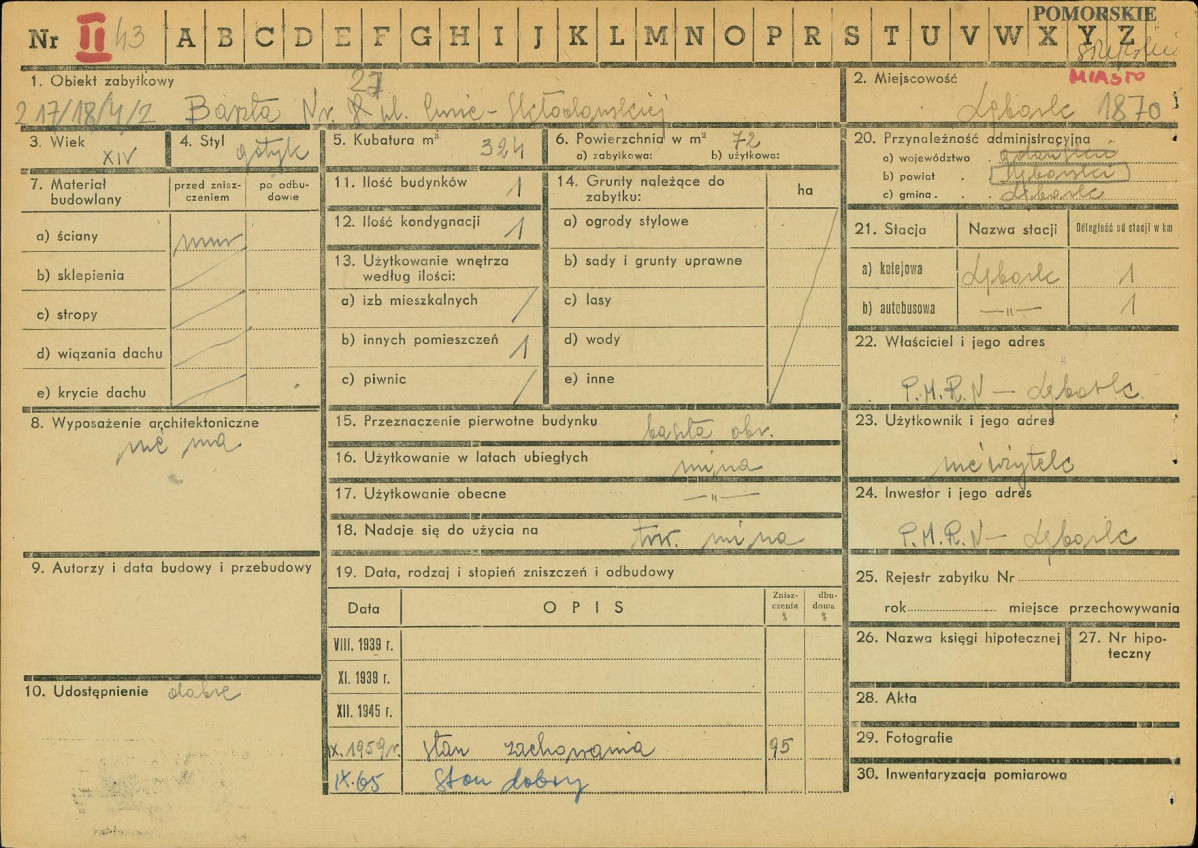 POMORSKIE
Nr II 43 A B C D E F G H I J K L M N O P R S T U V W X Y Z
MIASTO
1. Obiekt zabytkowy
27
Baszta Nr. 8 ul. Curie-Skłodowskiej
2. Miejscowość
Lębork 1870
3. Wiek
XIV
4. Styl
gotyk
5. Kubatura m³
324
6. Powierzchnia w m² 72
a) zabytkowa: b) użytkowa:
20. Przynależność administracyjna
a) województwo . gdańskie
b) powiat . lęborski
c) gmina . . Lębork
7. Materiał budowlany
przed znisz-
czeniem
po odbu-
dowie
a) ściany mur
b) sklepienia
c) stropy
d) wiązania dachu
e) krycie dachu
8. Wyposażenie architektoniczne
nie ma
9. Autorzy i data budowy i przebudowy
10. Udostępnienie dobre
11. Ilość budynków 1
12. Ilość kondygnacji 1
13. Użytkowanie wnętrza
według ilości:
a) izb mieszkalnych /
b) innych pomieszczeń 1
c) piwnic /
14. Grunty należące do
zabytku:
ha
a) ogrody stylowe
b) sady i grunty uprawne
c) lasy
d) wody
e) inne
15. Przeznaczenie pierwotne budynku baszta obr.
16. Użytkowanie w latach ubiegłych ruina
17. Użytkowanie obecne —"—
18. Nadaje się do użycia na trw. ruina
19. Data, rodzaj i stopień zniszczeń i odbudowy
Data
OPIS
Znisz-
czenia
%
dbu-
dowa
%
VIII. 1939 r.
XI. 1939 r.
XII. 1945 r.
IX. 1959 r. Stan zachowania 95
IX.65 Stan dobry
21. Stacja
Nazwa stacji
Odległość od stacji w km
a) kolejowa Lębork 1
b) autobusowa —"— 1
22. Właściciel i jego adres
P.M.R.N — Lębork
23. Użytkownik i jego adres
nieużytek
24. Inwestor i jego adres
P.M.R.N — Lębork
25. Rejestr zabytku Nr
rok miejsce przechowywania
26. Nazwa księgi hipotecznej
27. Nr hipo-
teczny
28. Akta
29. Fotografie
30. Inwentaryzacja pomiarowa